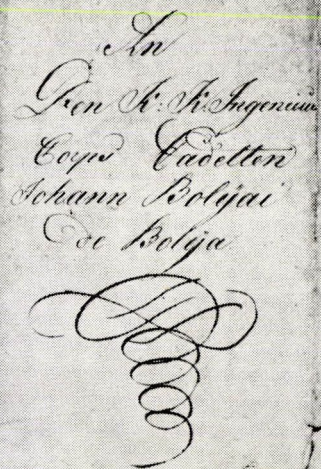 An
Den K: K. Ingenieur
Corps Cadetten
Johann Bolÿai
De Bolÿa